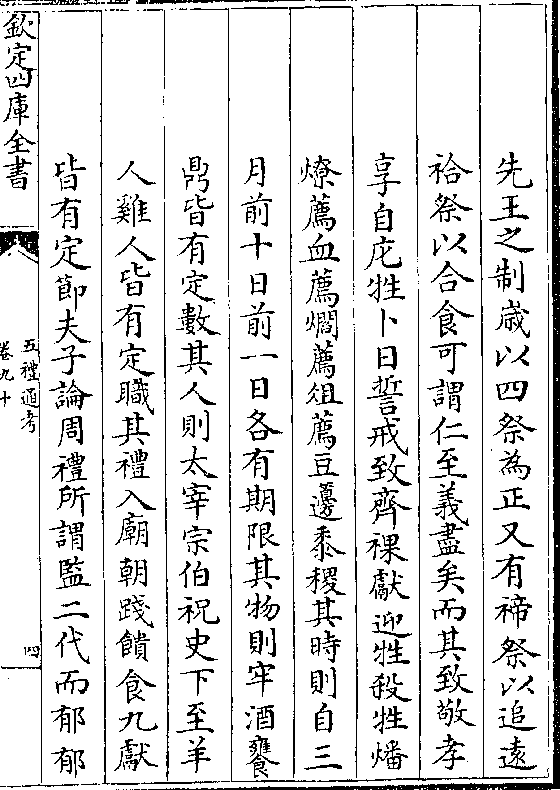 先王之制歲以四祭為正又有禘祭以追遠
祫祭以合食可謂仁至義盡矣而其致敬孝
享自庀牲卜日誓戒致齊祼獻迎牲殺牲燔
燎薦血薦爓薦俎薦豆籩黍稷其時則自三
月前十日前一日各有期限其物則牢酒饔
鼎皆有定數其人則太宰宗伯祝史下至羊
人雞人皆有定職其禮入廟朝踐饋食九獻
皆有定節夫子論周禮所謂監二代而郁郁
欽定四庫全書
五禮通考
卷九十
四